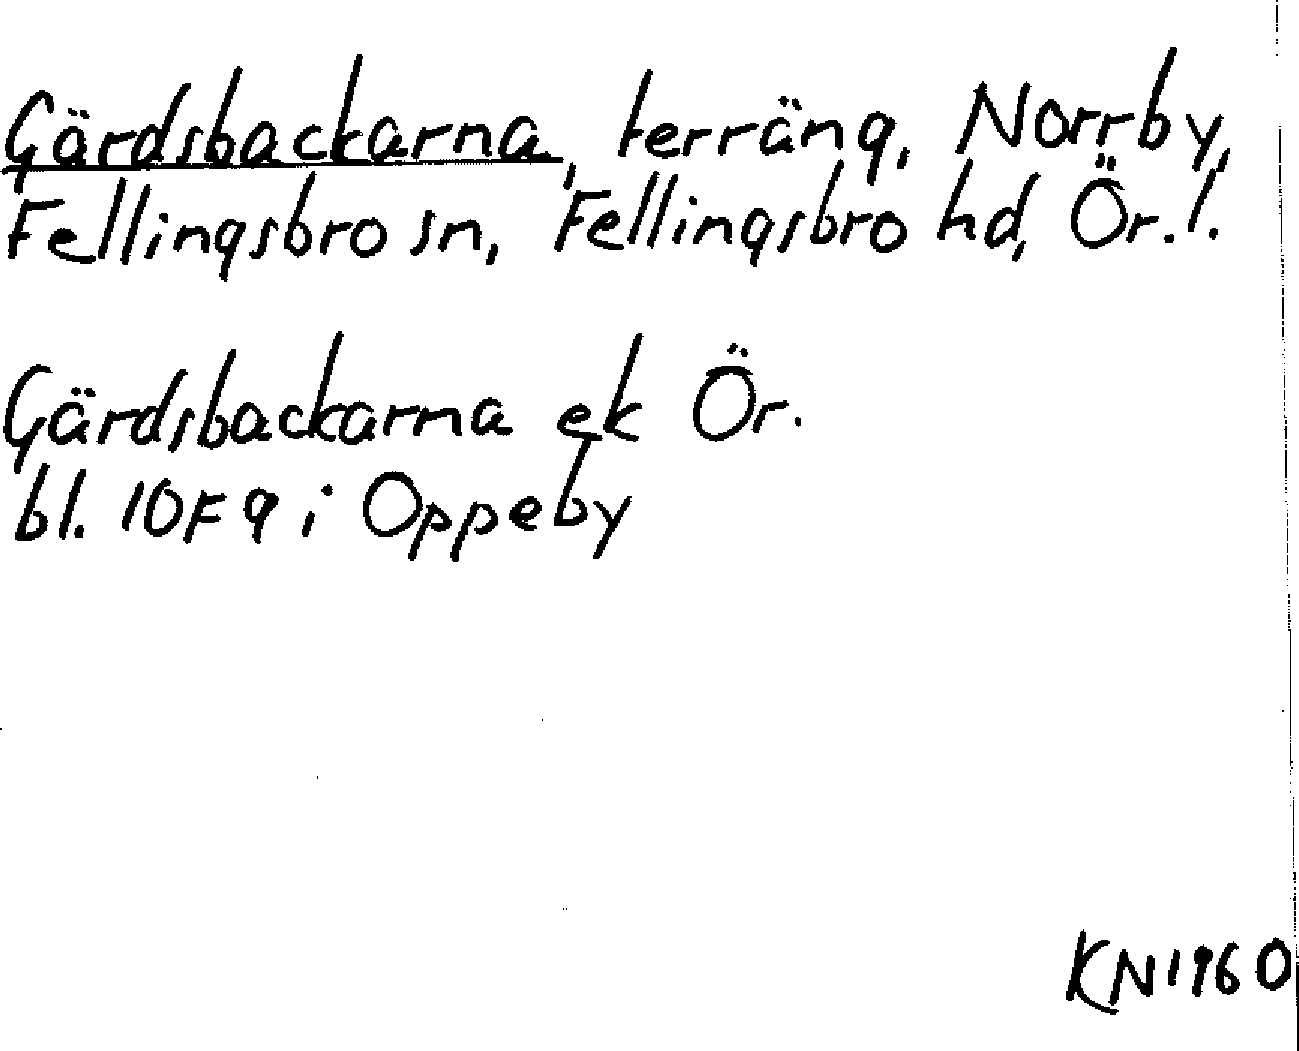 Gärdsbackarna, terräng, Norrby,
Fellingsbro sn, Fellingsbro hd, Ör. l.
Gärdsbackarna ek Ör.
bl. 10F9 i Oppeby
KN 1960